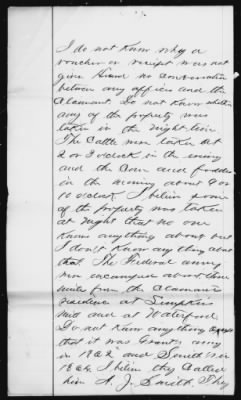 I do not know why a
voucher or receipt was not
given. Heard no conversation
between any officer and the
Claimant. Do not know whether
any of the property was
taken in the night time.
The Cattle were taken at
2 or 3 o'clock in the evening
and the Corn and fodder
in the morning about 9 or
10 o'clock. I believe some
of the property was taken
at night that no one
knows anything about but
I don't know any thing about
that. The Federal army
were encamped about three
miles from the Claimants
residence at Simpkins
mill and at Waterford.
Do not know anything except
that it was Grants army
in 1862 and Smith's in
1864. I believe they Called
him A. J. Smith. They